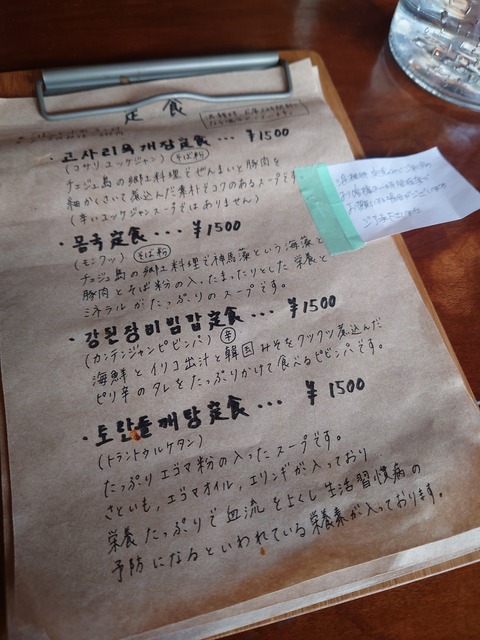 定食
・고사리육개장定食... ¥1500
(コサリユッケジャン) そば粉
チェジュ島の郷土料理でぜんまいと豚肉を
細かくさいて煮込んだ素朴でコクのあるスープです。
(辛いユッケジャンスープではありません)
・몸국定食.... ¥1500
(モンクッ) そば粉
チェジュ島の郷土料理で神馬藻という海藻と
豚肉とそば粉の入ったまったりとした栄養と
ミネラルがたっぷりのスープです。
・강된장비빔밥定食... ¥1500
(カンテンジャンピビンパ) 辛
海鮮とイリコ出汁と韓国みそをクツクツ煮込んだ
ピリ辛のタレをたっぷりかけて食べるピビンパです。
・토란들깨탕定食... ¥1500
(トラントゥルケタン)
たっぷりエゴマ粉の入ったスープです。
さといも,エゴマオイル,エリンギが入っており
栄養たっぷりで血流をよくし生活習慣病の
予防になるといわれている栄養素が入っております。